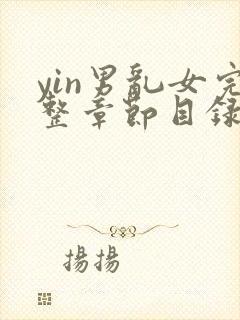 yin男亂女完
整章節目錄
揚揚